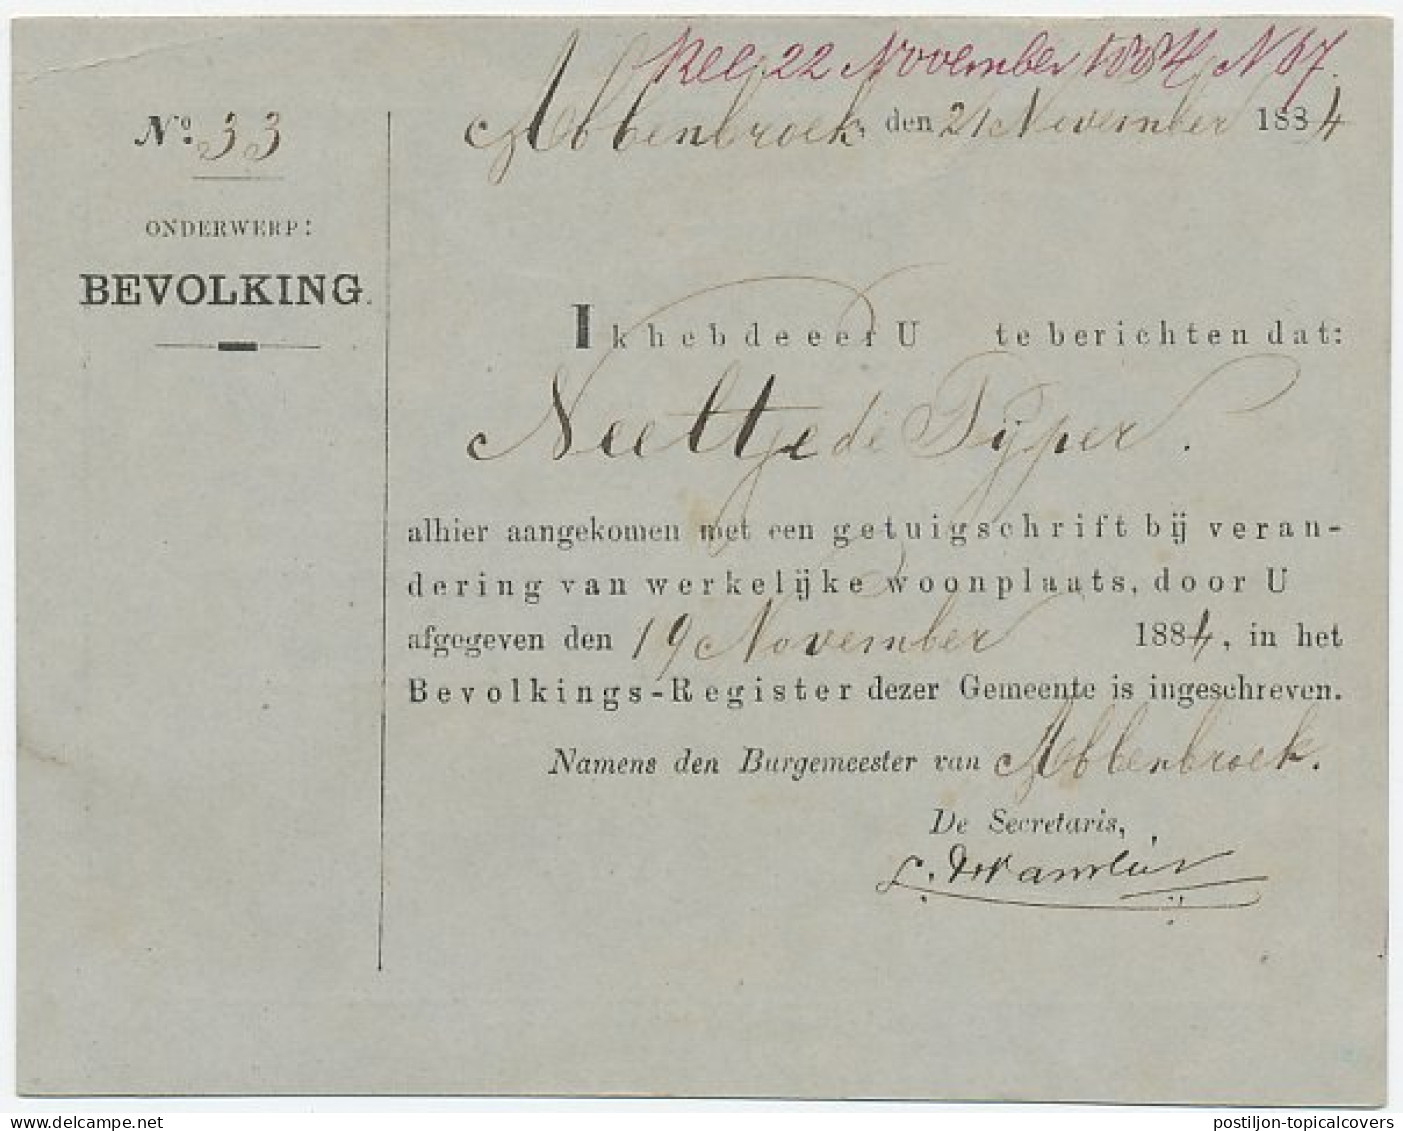 Rec 22 November 1884 N 57.
No. 33
Abbenbroek, den 21 November 1884
ONDERWERP:
BEVOLKING.
Ik heb de eer U te berichten dat:
Neeltje de Tijper.
alhier aangekomen met een getuigschrift bij veran-
dering van werkelijke woonplaats, door U
afgegeven den 19 November 1884, in het
Bevolkings-Register dezer Gemeente is ingeschreven.
Namens den Burgemeester van Abbenbroek.
De Secretaris,
postiljon-topicalcovers